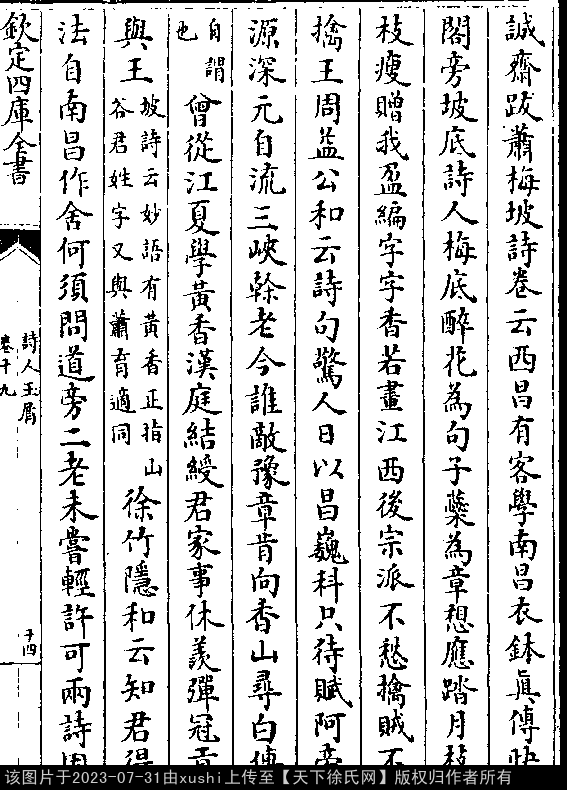 誠齋跋蕭梅坡詩卷云西昌有客學南昌衣鉢真傳快
閣旁坡底詩人梅底醉花為句子蘂為章想應踏月枝
枝瘦贈我盈編字字香若畫江西後宗派不愁擒賊不
擒王周益公和云詩句驚人日以昌巍科只待賦阿
源深元自流三峽幹老今誰敵豫章肯向香山尋白傅
自謂
也
曾從江夏學黃香漢庭結綬君家事休羨彈冠
與王
坡詩云妙語有黃香正指山
谷君姓字又與蕭育適同
徐竹隱和云知君得
法自南昌作舍何須問道旁二老未嘗輕許可兩詩
欽定四庫全書
詩人玉屑
卷十九
十四
该图片于2023-07-31由xushi上传至【天下徐氏网】版权归作者所有